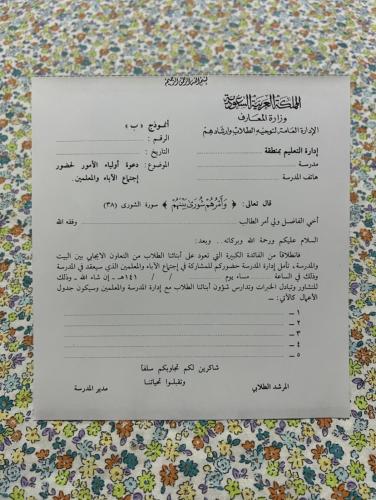 بسم الله الرحمن الرحيم
المملكة العربية السعودية
وزارة المعارف
الإدارة العامة لتوجيه الطلاب وإرشادهم
إدارة التعليم بمنطقة
مدرسة
هاتف المدرسة
أنموذج « ب »
الرقم :
التاريخ :
الموضوع : دعوة أولياء الأمور لحضور
إجتماع الآباء والمعلمين.
قال تعالى : ﴿ وَأَمْرُهُمْ شُورَى بَيْنَهُمْ ﴾ سورة الشورى (٣٨)
أخي الفاضل ولي أمر الطالب ........ وفقه الله
السلام عليكم ورحمة الله وبركاته .. وبعد :
فانطلاقاً من الفائدة الكبيرة التي تعود على أبنائنا الطلاب من التعاون الايجابي بين البيت
والمدرسة، تأمل إدارة المدرسة حضوركم للمشاركة في إجتماع الآباء والمعلمين الذي سيعقد في المدرسة
وذلك في الساعة ........ مساء يوم ........ / / ١٤١هـ ـ إن شاء الله ـ وذلك
للتشاور وتبادل الخبرات وتدارس شؤون أبنائنا الطلاب مع إدارة المدرسة والمعلمين وسيكون جدول
الأعمال كالآتي : ـ
١ ـ
٢ ـ
٣ ـ
٤ ـ
٥ ـ
شاكرين لكم تجاوبكم سلفاً
وتقبلوا تحياتنا
المرشد الطلابي
مدير المدرسة